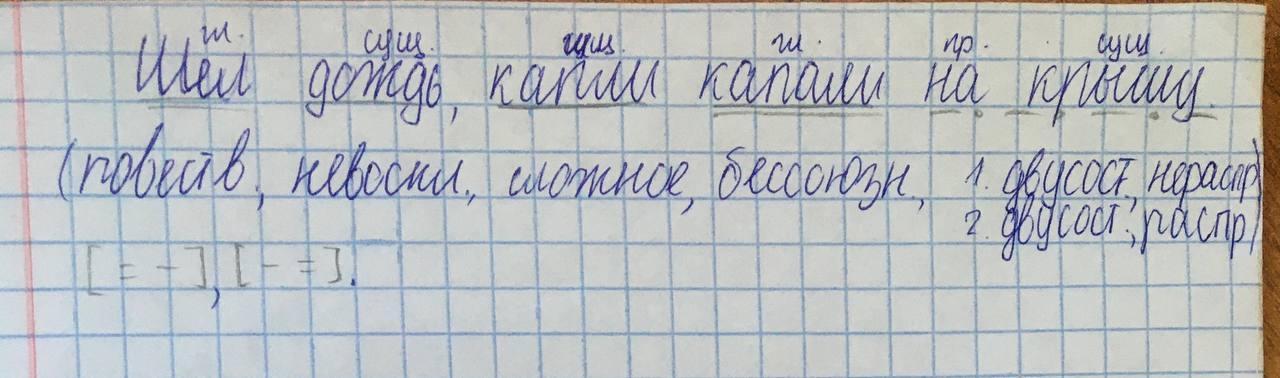 гл. сущ. сущ. гл. пр. сущ.
Шёл дождь, капли капали на крышу.
(повеств., невоскл., сложное, бессоюзн., 1. двусост., нераспр)
2. двусост., распр)
[= -], [- =].